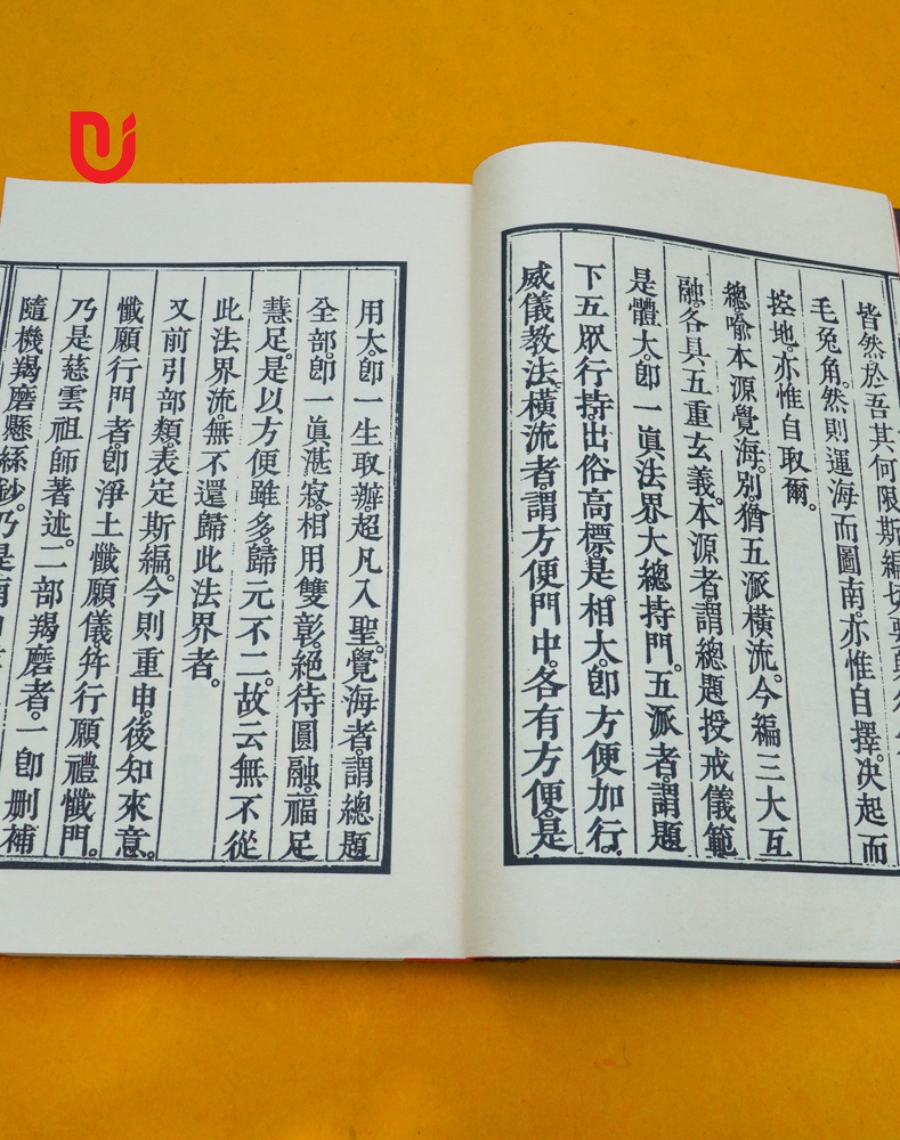 皆然於吾其何限斯編切要
毛兔角。然則運海而圖南。亦惟自擇。決起而
控地。亦惟自取爾。
總喻本源覺海。別猶五派橫流。今編三大互
融。各具五重玄義。本源者。謂總題授戒儀範
是體大。卽一眞法界大總持門。五派者。謂題
下五眾行持出俗高標。是相大。卽方便加行。
威儀教法。橫流者。謂方便門中。各有方便。是
用大。卽一生取辦。超凡入聖。覺海者。謂總題
全部。卽一眞湛寂。相用雙彰。絕待圓融。福足
慧足。是以方便雖多。歸元不二。故云無不從
此法界流。無不還歸此法界者。
又前引部類。表定斯編。今則重申。後知來意。
懺願行門者。卽淨土懺願儀。幷行願禮懺門。
乃是慈雲祖師著述。二部羯磨者。一卽刪補
隨機羯磨。懸絲鈔。乃是南